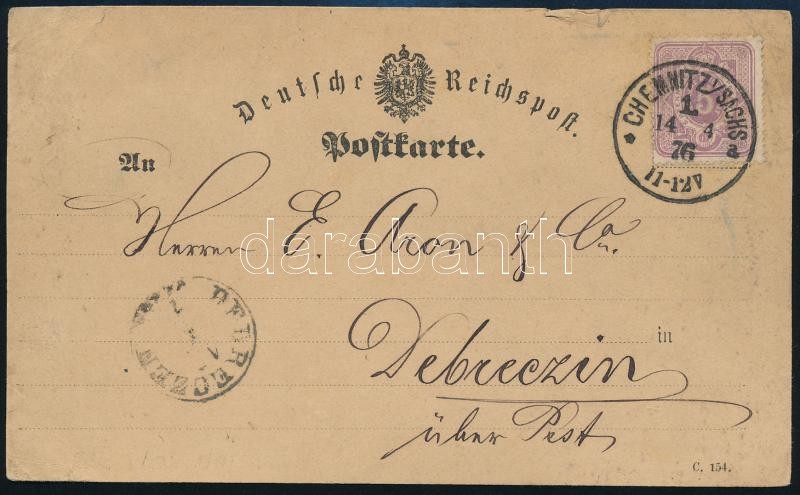 Deutsche Reichspost.
Postkarte.
CHEMNITZ/SACHS
1.
14 4
76
a
11-12V
5
An
Herren E. Aron & Co.
darabanth
DEBRECZEN
in
Debreczin
über Pest
C. 154.